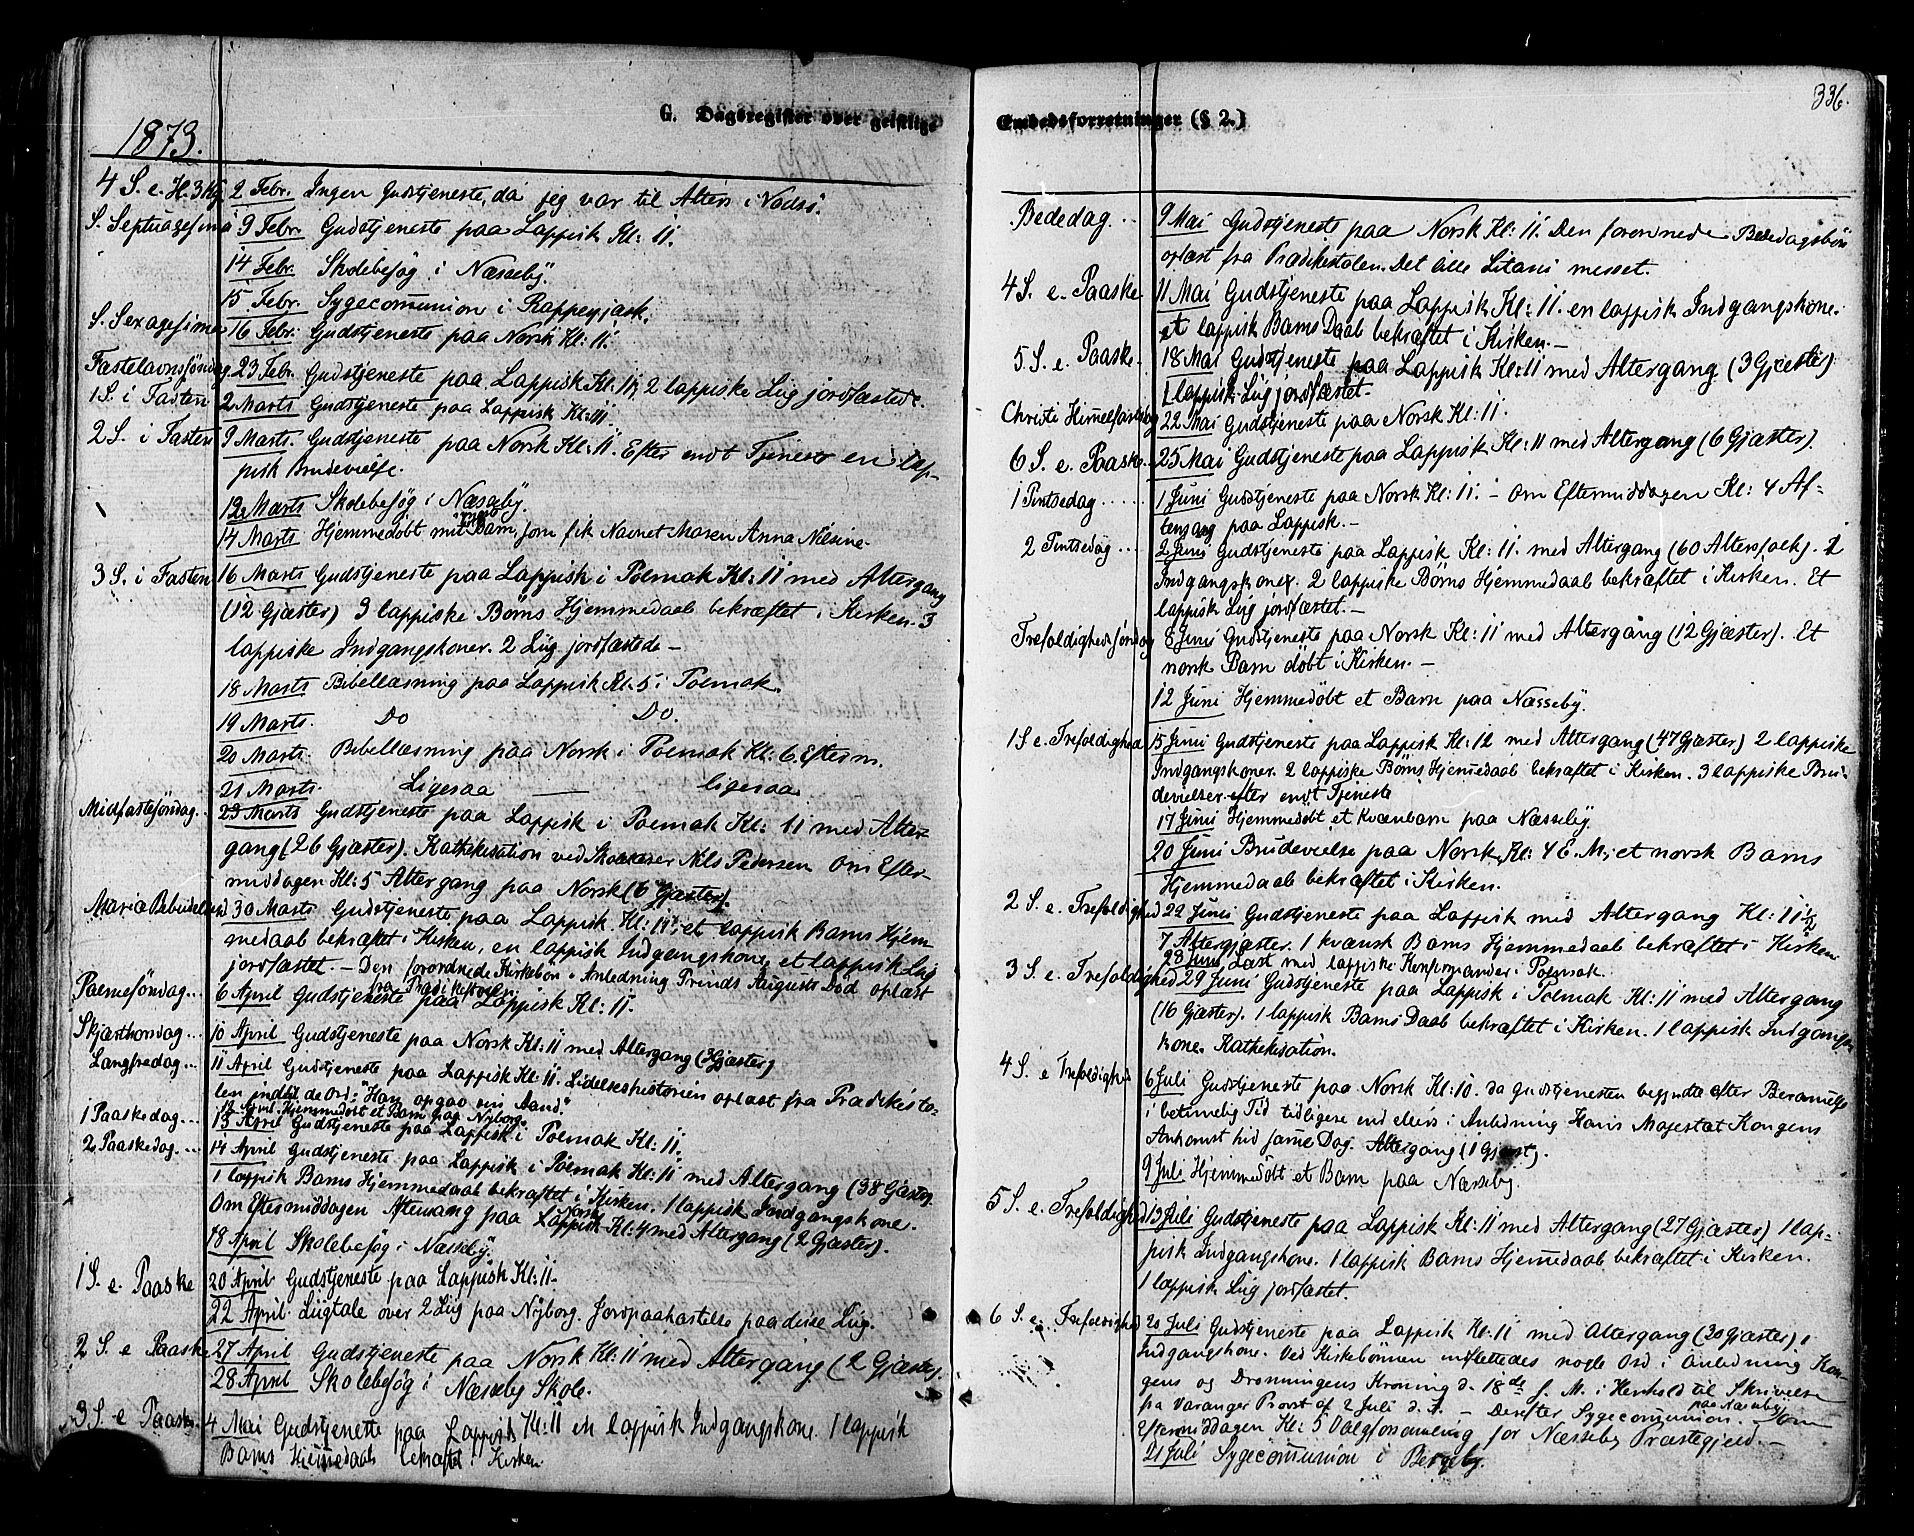 G. Dagsregister over geistlige
1873.
4 S. e. H. 3 Kg. 2 Febr. Ingen Gudstjeneste, da jeg var til Alters i Vadsö.
S. Septuagesima 9 Febr. Gudstjeneste paa Lappisk Kl: 11.
14 Febr. Skolebesøg i Næsseby.
15 Febr. Sygecom̅union i
S. Sexagesima 16 Febr. Gudstjeneste paa Norsk Kl: 11.
Fastelavnssöndag 23 Febr. Gudstjeneste paa Lappisk Kl: 11, 2 lappiske Liig jordfæstede.
1 S. i Fasten 2 Marts Gudstjeneste paa Lappisk Kl: 11.
2 S. i Fasten 9 Marts. Gudstjeneste paa Norsk Kl: 11. Efter endt Tjeneste en lap-
pisk Brudevielse.
12 Marts Skolebesøg i Næsseby.
14 Marts Hjemmedöbt mit Barn, som fik Navnet Maren Anna Nisine.
3 S. i Fasten 16 Marts Gudstjeneste paa Lappisk i Polmak Kl: 11 med Altergang
(12 Gjæster) 3 lappiske Börns Hjemmedaab bekræftet i Kirken. 3
lappiske Indgangskoner. 2 Liig jordfæstede —
18 Marts Bibellæsning paa Lappisk Kl: 5 i Polmak.
19 Marts. Do Do.
20 Marts. Bibellæsning paa Norsk i Polmak Kl: 6 Efterm.
21 Marts. Ligesaa — ligesaa
Midfastesöndag.. 23 Marts Gudstjeneste paa Lappisk i Polmak Kl: 11 med Alter-
gang (26 Gjæster). Kathekisation ved Nils Pedersen Om Efter-
middagen Kl: 5 Altergang paa Norsk (6 Gjæster).
Mariæ Bebudelsesd 30 Marts Gudstjeneste paa Lappisk Kl: 11, et lappisk Barns Hjem
medaab bekræftet i Kirken, en lappisk Indgangskone, et lappisk Liig
jordfæstet. — Den forordnede Kirkebön i Anledning Prinds Augusts Död oplæst
fra Prædikestolen.
Palmesöndag... 6 April Gudstjeneste paa Lappisk Kl: 11.
Skjærthorsdag... 10 April Gudstjeneste paa Norsk Kl: 11 med Altergang (3 Gjæster)
Langfredag... 11 April Gudstjeneste paa Lappisk Kl: 11. Lidelseshistorien oplæst fra Prædikesto-
len indtil de Ord: "Han opgav sin Aand."
12 April Hjemmedöbt et Barn paa Nyborg.
1 Paaskedag... 13 April Gudstjeneste paa Lappisk i Polmak Kl: 11.
2 Paaskedag... 14 April Gudstjeneste paa Lappisk i Polmak Kl: 11 med Altergang (38 Gjæster).
1 lappisk Barns Hjemmedaab bekræftet i Kirken. 1 lappisk Indgangskone.
Om Eftermiddagen Aftensang paa Lappisk Norsk Kl: 4 med Altergang (2 Gjæster).
18 April Skolebesøg i Næsseby.
1 S. e. Paaske 20 April Gudstjeneste paa Lappisk Kl: 11.
22 April. Liigtale over 2 Liig paa Nyborg. Jordpaakastelse paa disse Liig.
2 S. e Paaske 27 April Gudstjeneste paa Norsk Kl: 11 med Altergang (2 Gjæster).
28 April Skolebesøg i Næsseby Skole.
3 S. e Paaske. 4 Mai Gudstjeneste paa Lappisk Kl: 11 en lappisk Indgangskone. 1 lappisk
Barns Hjem̅edaab bekræftet i Kirken
336.
Embedsforretninger (§ 2.)
Bededag... 9 Mai Gudstjeneste paa Norsk Kl: 11. Den forordnede Bededagsbön
oplæst fra Prædikestolen. Det lille Litani messet.
4 S. e. Paaske. 11 Mai Gudstjeneste paa Lappisk Kl: 11. en lappisk Indgangskone.
et lappisk Barns Daab bekræftet i Kirken. —
5 S. e. Paaske. 18 Mai Gudstjeneste paa Lappisk Kl: 11 med Altergang (3 Gjæster)
1 lappisk Liig jordfæstet.
Christi Him̅elfartsdag 22 Mai Gudstjeneste paa Norsk Kl: 11.
6 S. e. Paaske.. 25 Mai Gudstjeneste paa Lappisk Kl: 11 med Altergang (6 Gjæster).
1 Pintsedag...... 1 Juni Gudstjeneste paa Norsk Kl: 11. — Om Eftermiddagen Kl: 4 Af-
tensang paa Lappisk. —
2 Pintsedag ... 2 Juni Gudstjeneste paa Lappisk Kl: 11. med Altergang (60 Altersfolk). 1
Indgangskone. 2 lappiske Börns Hjemmedaab bekræftet i Kirken. Et
lappisk Liig jordfæstet. —
Trefoldighedssöndag 8 Juni Gudstjeneste paa Norsk Kl: 11 med Altergang (12 Gjæster). Et
norsk Barn döbt i Kirken. —
12 Juni Hjemmedöbt et Barn paa Næsseby.
1 S e. Trefoldighed 15 Juni Gudstjeneste paa Lappisk Kl: 12 med Altergang (47 Gjæster) 2 lappiske
Indgangskoner. 2 lappiske Börns Hjem̅edaab bekræftet i Kirken. 3 lappiske Bru-
devielser efter endt Tjeneste
17 Juni Hjemmedöbt et kvænbarn paa Næsseby.
20 Juni Brudevielse paa Norsk, Kl: 4 E. M; et norsk Barns
Hjemmedaab bekræftet i Kirken.
2 S. e. Trefoldighed 22 Juni Gudstjeneste paa Lappisk med Altergang Kl: 11 1/2
7 Altergjæster. 1 kvænsk Barns Hjemmedaab bekræftet i Kirken
28 Juni Læst med lappiske Konfirmander i Polmak.
3 S. e. Trefoldighed 29 Juni Gudstjeneste paa Lappisk i Polmak Kl: 11 med Altergang
(16 Gjæster). 1 lappisk Barns Daab bekræftet i Kirken. 1 lappisk Indgangs-
kone. Kathekisation.
4 S. e Trefoldighed 6 Juli Gudstjeneste paa Norsk Kl: 10. da Gudstjenesten begyndte efter Berammelse
i betimelig Tid tidligere end ellers i Anledning Hans Majestæt Kongens
Ankomst hid sam̅e Dag. Altergang (1 Gjæst).
9 Juli Hjemmedöbt et Barn paa Næsseby
5 S. e. Trefoldighed 13 Juli Gudstjeneste paa Lappisk Kl: 11 med Altergang (27 Gjæster) 1 lap-
pisk Indgangskone. 1 lappisk Barns Hjem̅edaab bekræftet i Kirken.
1 lappisk Liig jordfæstet.
6 S. e. Trefoldighed 20 Juli Gudstjeneste paa Lappisk Kl: 11 med Altergang (30 Gjæster) 1
Indgangskone. Ved Kirkebönnen indflettedes nogle Ord i Anledning Kon-
gens og Dronningens Kroning d. 18de d. M. i Henhold til Skrivelse
fra Varanger Provst af 2 Juli d. A. — Derefter Sygecom̅union paa Næsseby. — Om
Eftermiddagen Kl: 5 Valgforsamling for Næsseby Præstegjeld. —
21 Juli Sygecom̅union i Bergeby.